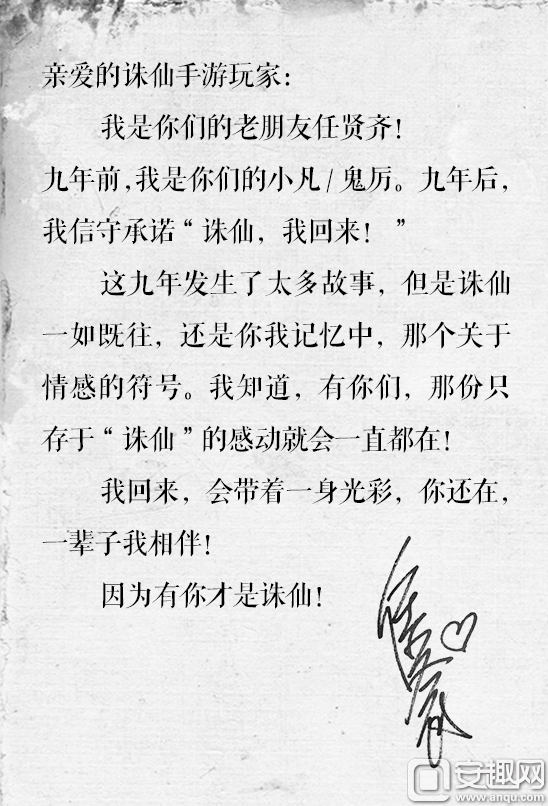 亲爱的诛仙手游玩家：
我是你们的老朋友任贤齐！
九年前，我是你们的小凡/鬼厉。九年后，
我信守承诺“诛仙，我回来！”
这九年发生了太多故事，但是诛仙
一如既往，还是你我记忆中，那个关于
情感的符号。我知道，有你们，那份只
存于“诛仙”的感动就会一直都在！
我回来，会带着一身光彩，你还在，
一辈子我相伴！
因为有你才是诛仙！
任贤齐
安趣网
www.anqu.com